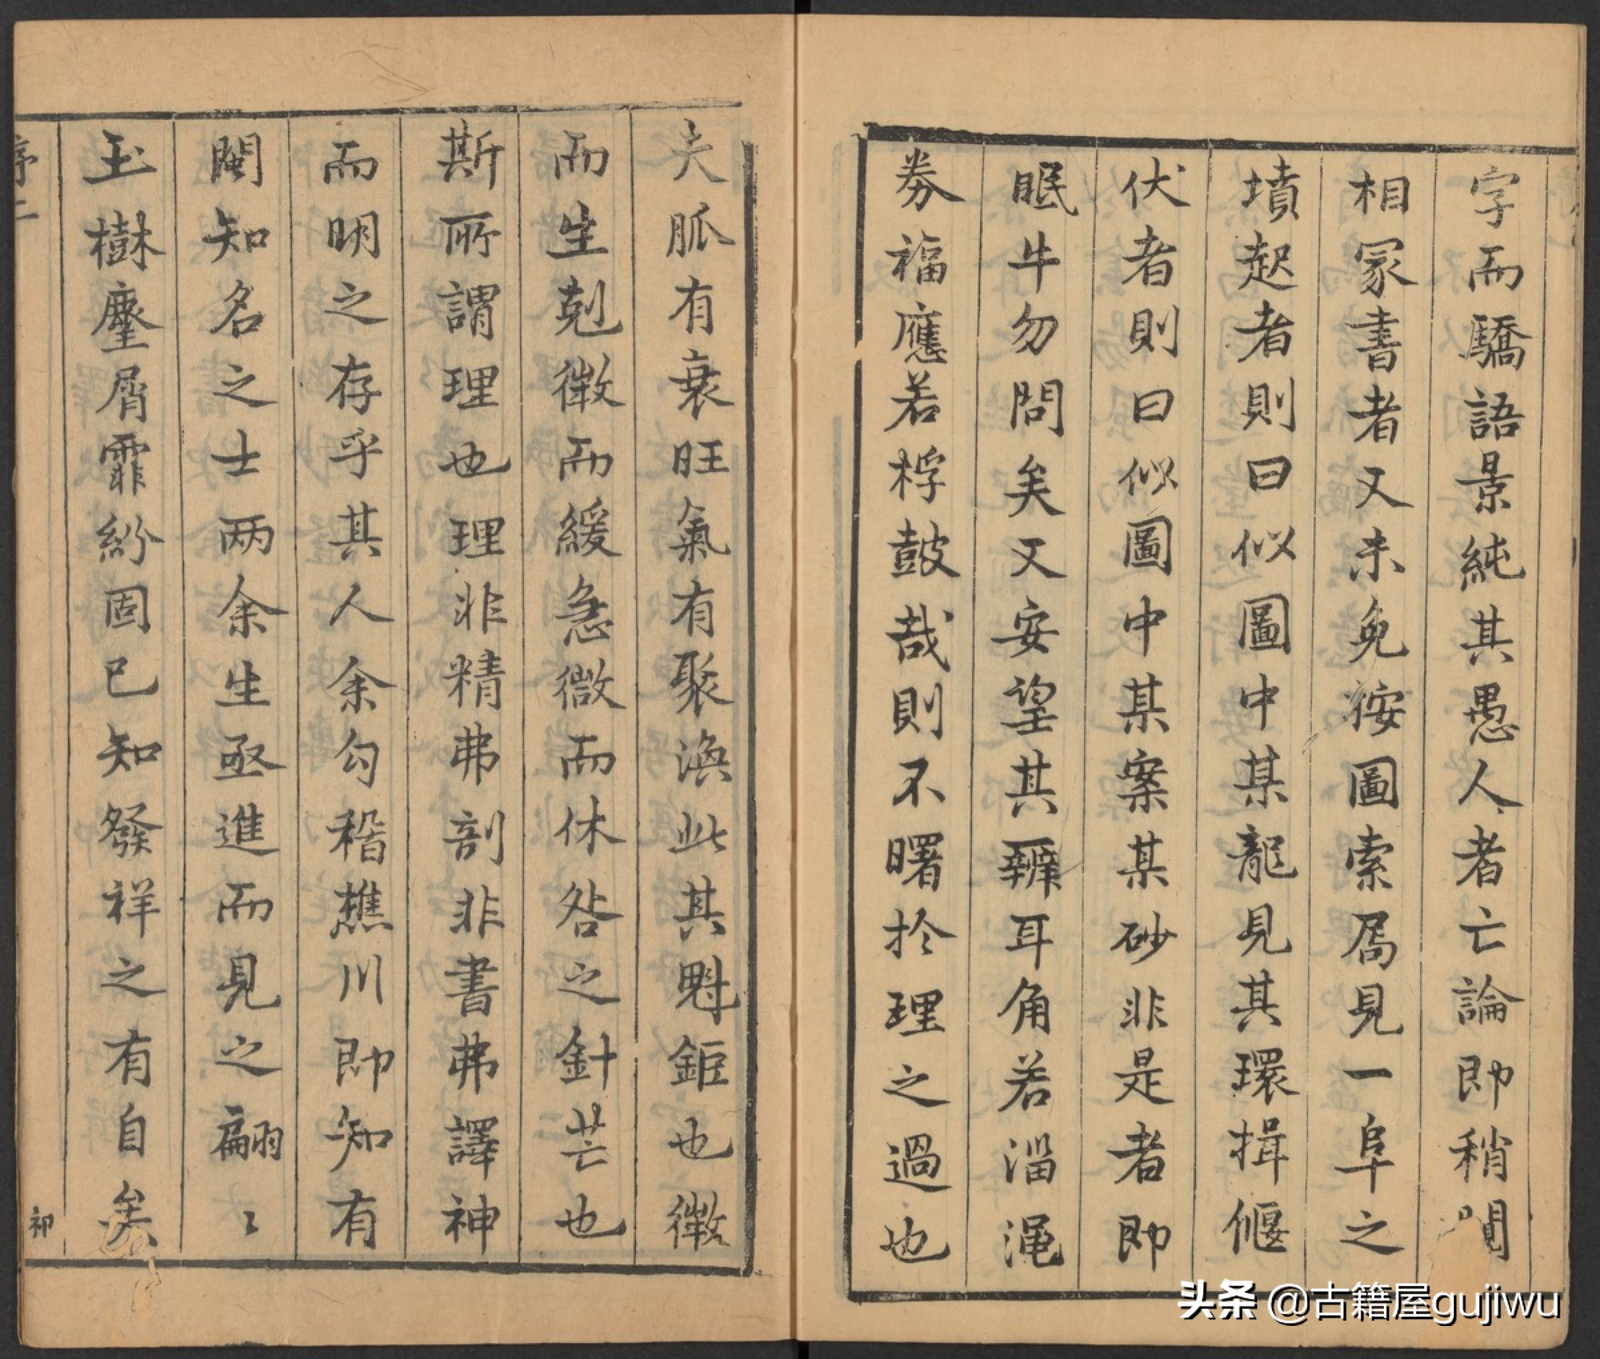 字而驕語景純其愚人者亡論即稍閱
相冢書者又未免按圖索馬見一阜之
墳起者則曰似圖中某龍見其環揖偃
伏者則曰似圖中某案某砂非是者即
眠牛勿問矣又安望其辨耳角若淄澠
券福應若桴鼓哉則不曙於理之過也
夫脈有衰旺氣有聚渙此其魁鉅也徵
而生剋徵而緩急微而休咎之針芒也
斯所謂理也理非精弗剖非書弗譯神
而明之存乎其人余勾稽樵川即知有
閩知名之士两余生亟進而見之翩〻
玉樹麈屑霏紛固已知發祥之有自矣
序二
祁
头条 @古籍屋gujiwu